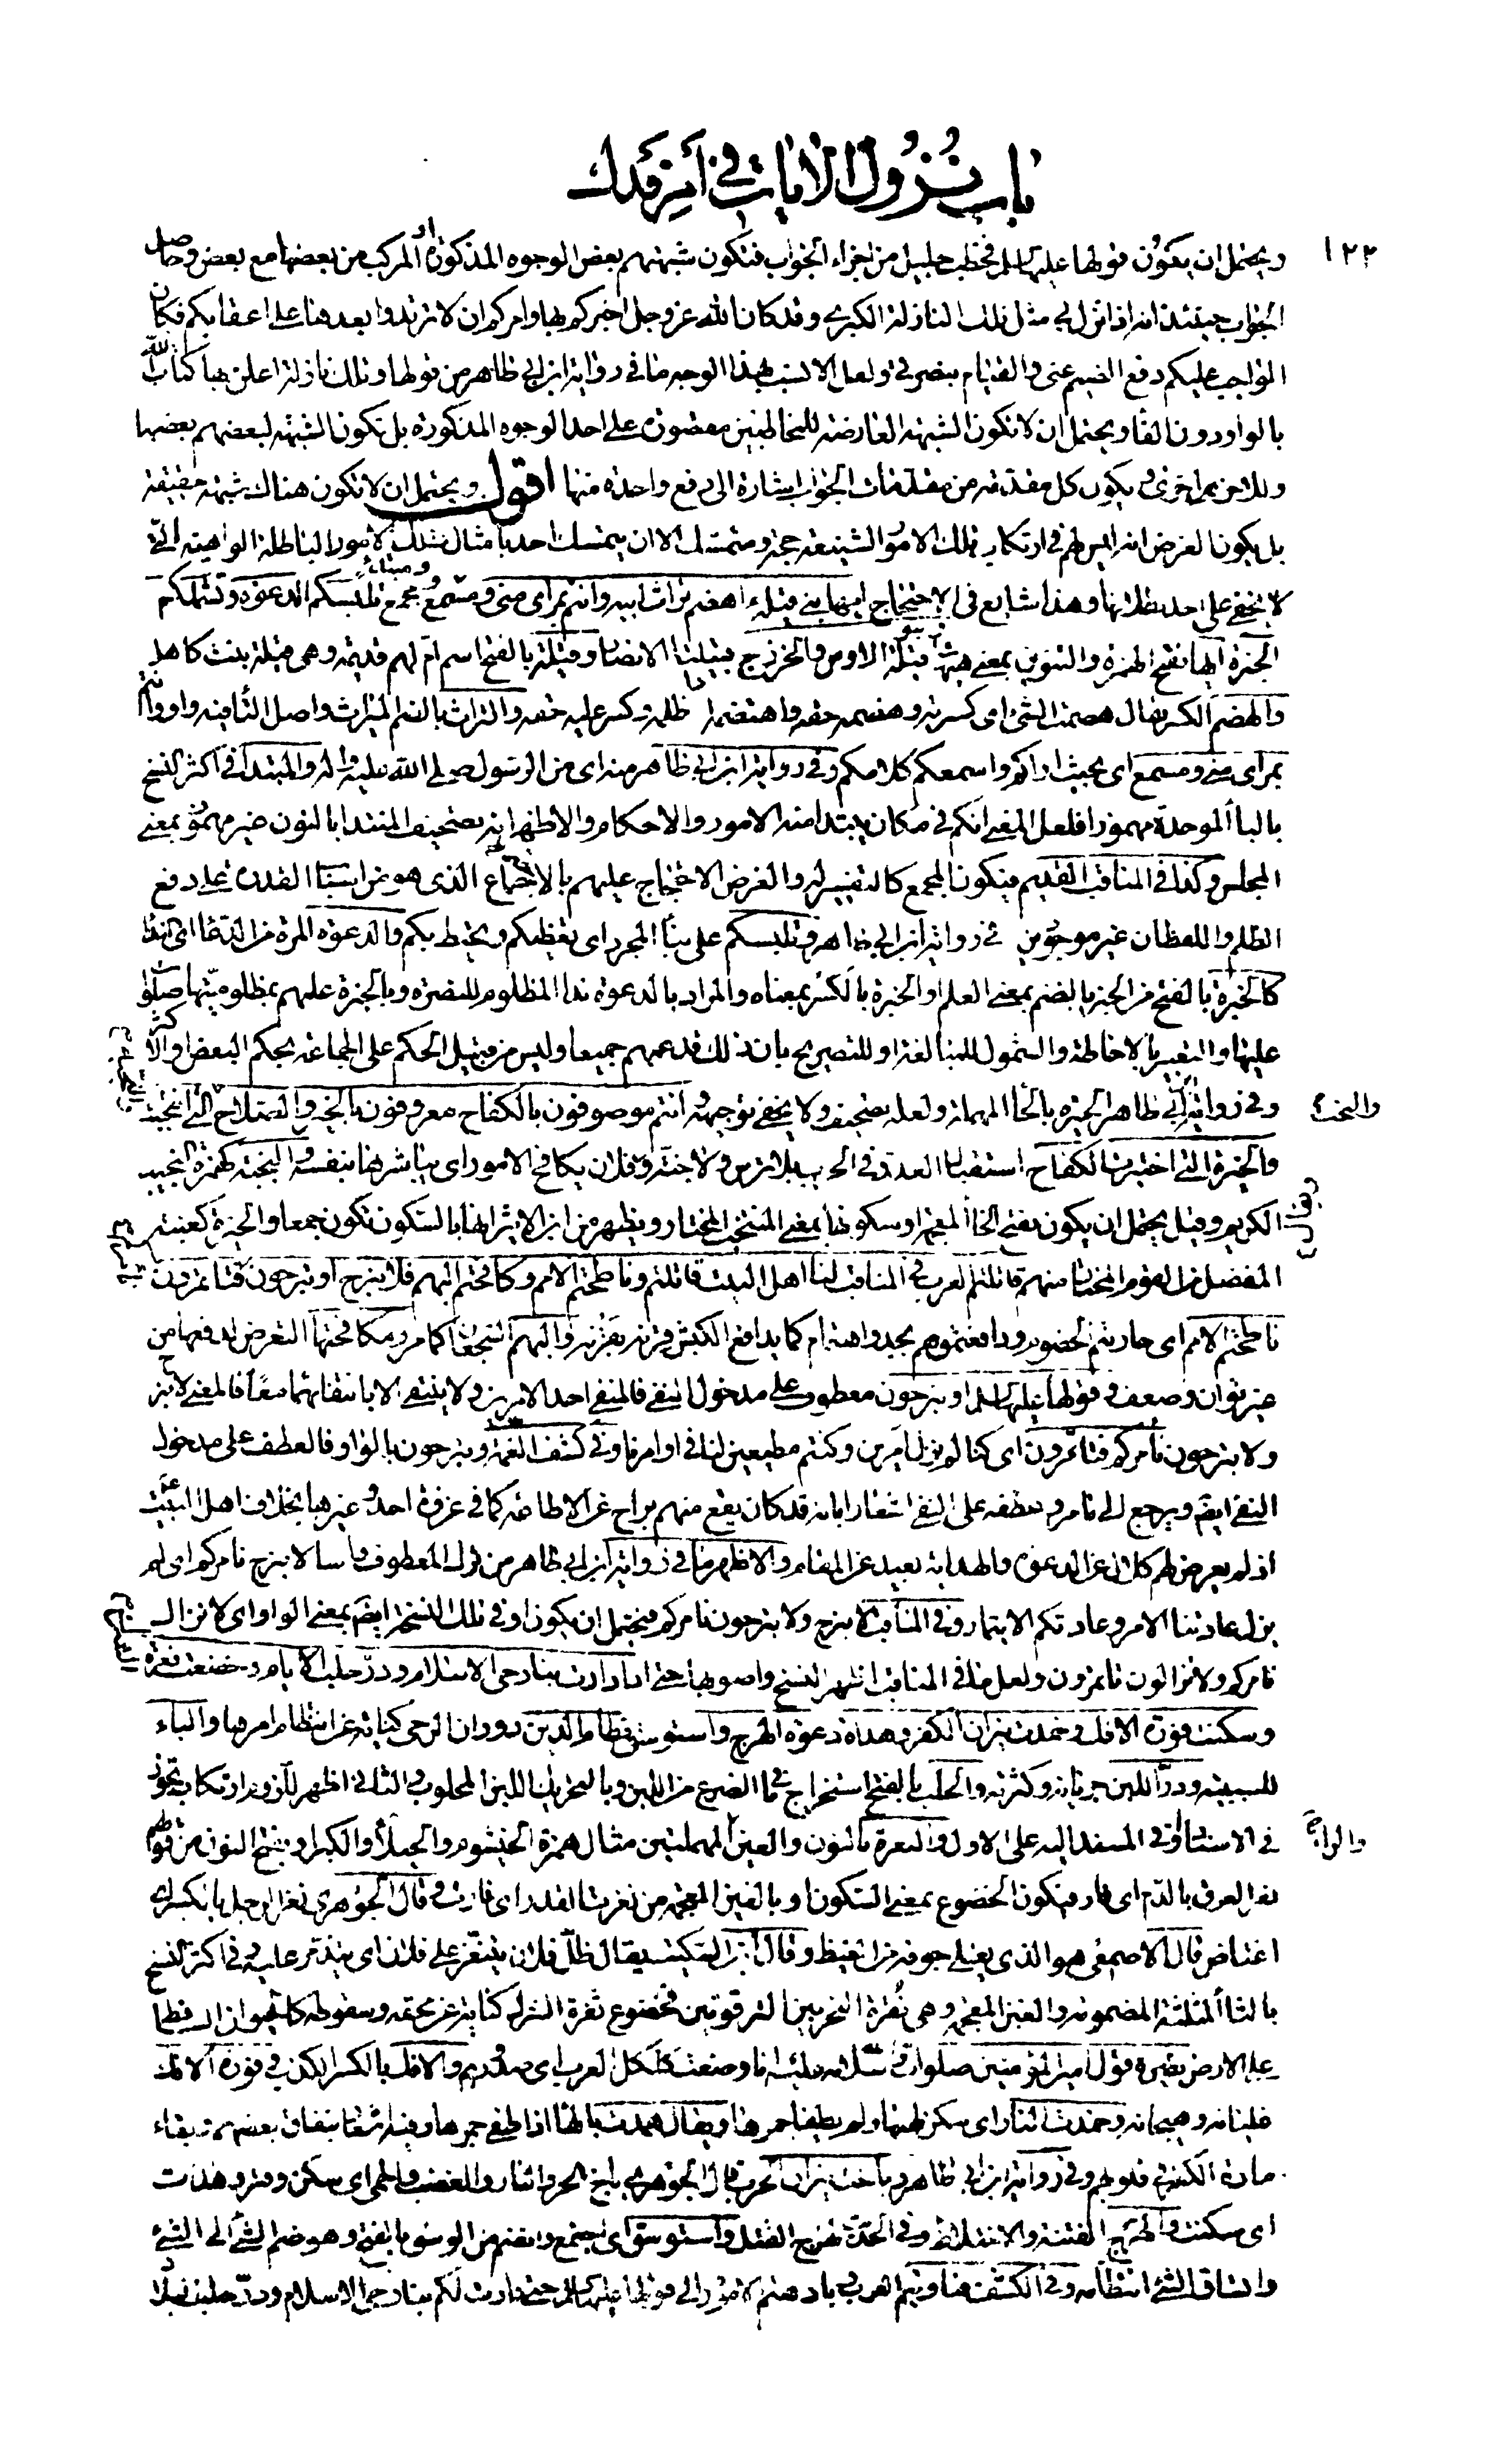 باب نزول الايات في امر فدك
١٢٢
ويحتمل ان يكون قولها عليها السلم فخطب جليل من اجزاء الجواب فتكون شبهتهم بعض الوجوه المذكورة او المركب من بعضها مع بعض وحاصل
الجواب حينئذ انه اذا نزل بي مثل تلك النازلة الكبرى وقد كان الله عز وجل اخبركم بها وامركم ان لا ترتدوا بعدها على اعقابكم فكان
الواجب عليكم دفع الضيم عني والقيام بنصرتي ولعل الانسب بهذا الوجه ما في رواية ابن ابي طاهر من قولها وتلك نازلة اعلن بها كتاب الله
بالواو دون الفاء ويحتمل ان لا تكون الشبهة العارضة للمخاطبين مقصورة على احد الوجوه المذكورة بل تكون الشبهة لبعضهم بعضها
وللاخر اخرى ويكون كل مقدمة من مقدمات الجواب اشارة الى دفع واحدة منها اقول ويحتمل ان لا تكون هناك شبهة حقيقة
بل يكون الغرض انه ليس لهم في ارتكاب تلك الامور الشنيعة حجة ومتمسك الا ان يتمسك احد بامثال تلك الامور الباطلة الواهية التي
لا يخفى على احد بطلانها وهذا شايع في الاحتجاج ايها بني قيلة ءاهضم تراث ابيه وانتم بمرأى مني ومسمع ومبتدأ ومجمع تلبسكم الدعوة وتشملكم
الخبرة ايها بفتح الهمزة والتنوين بمعنى هيهات وبنو قيلة الاوس والخزرج قبيلتا الانصار وقيلة بالفتح اسم ام لهم قديمة وهي قيلة بنت كاهل
والهضم الكسر يقال هضمت الشئ اى كسرته وهضمه حقه واهتضمه اذا ظلمه وكسر عليه حقه والتراث بالضم الميراث واصل التاء فيه واو وانتم
بمرأى مني ومسمع اى بحيث اراكم واسمعكم كلامكم وفي رواية ابن ابي طاهر منه اى من الرسول صلى الله عليه واله والمبتدأ في اكثر النسخ
بالباء الموحدة مهموزا فلعل المعنى انكم في مكان يبتدأ منه الامور والاحكام والاظهر انه تصحيف المنتدا بالنون غير مهموز بمعنى
المجلس وكذا في المناقب القديم فيكون المجمع كالتفسير له والغرض الاحتجاج عليهم بالاجتماع الذى هو من اسباب القدرة على دفع
الظلم واللفظان غير موجودين في رواية ابن ابي طاهر وتلبسكم على بناء المجرد اى تغطيكم وتحيط بكم والدعوة المرة من الدعاء اى النداء
كالخبرة بالفتح من الخبر بالضم بمعنى العلم او الخبرة بالكسر بمعناه والمراد بالدعوة نداء المظلوم للنصرة وبالخبرة علمهم بمظلوميتها صلوات الله
عليها والتعبير بالاحاطة والشمول للمبالغة او للتصريح بان ذلك قد عمهم جميعا وليس من قبيل الحكم على الجماعة بحكم البعض او الاكثر
وفي رواية ابن ابي طاهر الحيرة بالحاء المهملة ولعله تصحيف ولا يخفى توجيهه وانتم موصوفون بالكفاح معروفون بالخير والصلاح والنخبة التي انتخبت
والخيرة التي اختيرت الكفاح استقبال العدو في الحرب بلا ترس ولا جنة وفلان يكافح الامور اى يباشرها بنفسه والنجبة كهمزة النجيب
الكريم وقيل يحتمل ان يكون بفتح الخاء المعجمة او سكونها بمعنى المنتخب المختار ويظهر من ابن الاثير انها بالسكون تكون جمعا والخيرة كعنبة
المفضل من القوم المختار منهم قاتلتم العرب في المناقب لنا اهل البيت قاتلتم وناطحتم الامم وكافحتم البهم فلا نبرح او تبرحون نامركم فتأتمرون
ناطحتم الامم اى حاربتم الخصوم ودافعتموهم بجد واهتمام كما يدافع الكبش قرنه بقرنه والبهم الشجعان كما مر ومكافحتها التعرض لدفعها من
غير توان وضعف وقولها عليها السلم او تبرحون معطوف على مدخول النفي فالمنفي احد الامرين ولا ينتفي الا بانتفائهما معا فالمعنى لا نبرح
ولا تبرحون نامركم فتأتمرون اى كنا لم نزل آمرين وكنتم مطيعين لنا في اوامرنا وفي كشف الغمة وتبرحون بالواو فالعطف على مدخول
النفي ايضا ويرجع الى ما مر وعطفه على النفي اشعارا بانه قد كان يقع منهم براح عن الاطاعة كما في غزوة احد وغيرها بخلاف اهل البيت
اذ لم يعرض لهم كلال عن الدعوة والهداية بعيد عن المقام والاظهر ما في رواية ابن ابي طاهر من ترك المعطوف رأسا لا نبرح نامركم اى لم
يزل عادتنا الامر وعادتكم الايتمار وفي المناقب لا نبرح ولا تبرحون نامركم فيحتمل ان يكون او في تلك النسخ ايضا بمعنى الواو اى لا نزال
نامركم ولا تزالون تأتمرون ولعل ما في المناقب اظهر النسخ واصوبها حتى اذا دارت بنا رحى الاسلام ودر حلب الايام وخضعت نعرة الشرك
وسكنت فورة الافك وخمدت نيران الكفر وهدأت دعوة الهرج واستوسق نظام الدين دوران الرحى كناية عن انتظام امرها والباء
للسببية ودر اللبن جريانه وكثرته والحلب بالفتح استخراج ما في الضرع من اللبن وبالتحريك اللبن المحلوب والثاني اظهر للزوم ارتكاب تجوز
في الاسناد او في المسند اليه على الاول والنعرة بالنون والعين والراء المهملتين مثال همزة الخيشوم والخيلاء والكبر او بفتح النون من قولهم
نعر العرق بالدم اى فار فيكون الخضوع بمعنى السكون او بالغين المعجمة من نغرت القدر اى فارت وقال الجوهري نغر الرجل بالكسر اى
اغتاض قال الاصمعي هو الذي يغلي جوفه من الغيظ وقال ابن السكيت يقال ظل فلان يتنغر على فلان اى يتذمر عليه وفي اكثر النسخ
بالثاء المثلثة المضمومة والغين المعجمة وهي نقرة النحر بين الترقوتين فخضوع ثغرة الشرك كناية عن محقه وسقوطه كالحيوان الساقط
على الارض نظيره قول امير المؤمنين صلوات الله عليه انا وضعت كلكل العرب اى صدورهم والافك بالكسر الكذب وفورة الافك
غليانه وهيجانه وخمدت النار اى سكن لهبها ولم يطفأ جمرها ويقال همدت بالهاء اذا طفئ جمرها وفيه اشعار بنفاق بعضهم وبقاء
مادة الكفر في قلوبهم وفي رواية ابن ابي طاهر وباخت نيران الحرب قال الجوهري باخ الحر والنار والغضب والحمى اى سكن وفتر وهدأت
اى سكنت والهرج الفتنة والاختلاط وفي الحديث الهرج القتل واستوسق اى اجتمع وانضم من الوسق بالفتح وهو ضم الشئ الى الشئ
واتساق الشئ انتظامه وفي الكشف فناويتم العرب وبادهتم الامور الى قولها عليها السلم حتى دارت لكم بنا رحى الاسلام ودر حلب البلاد